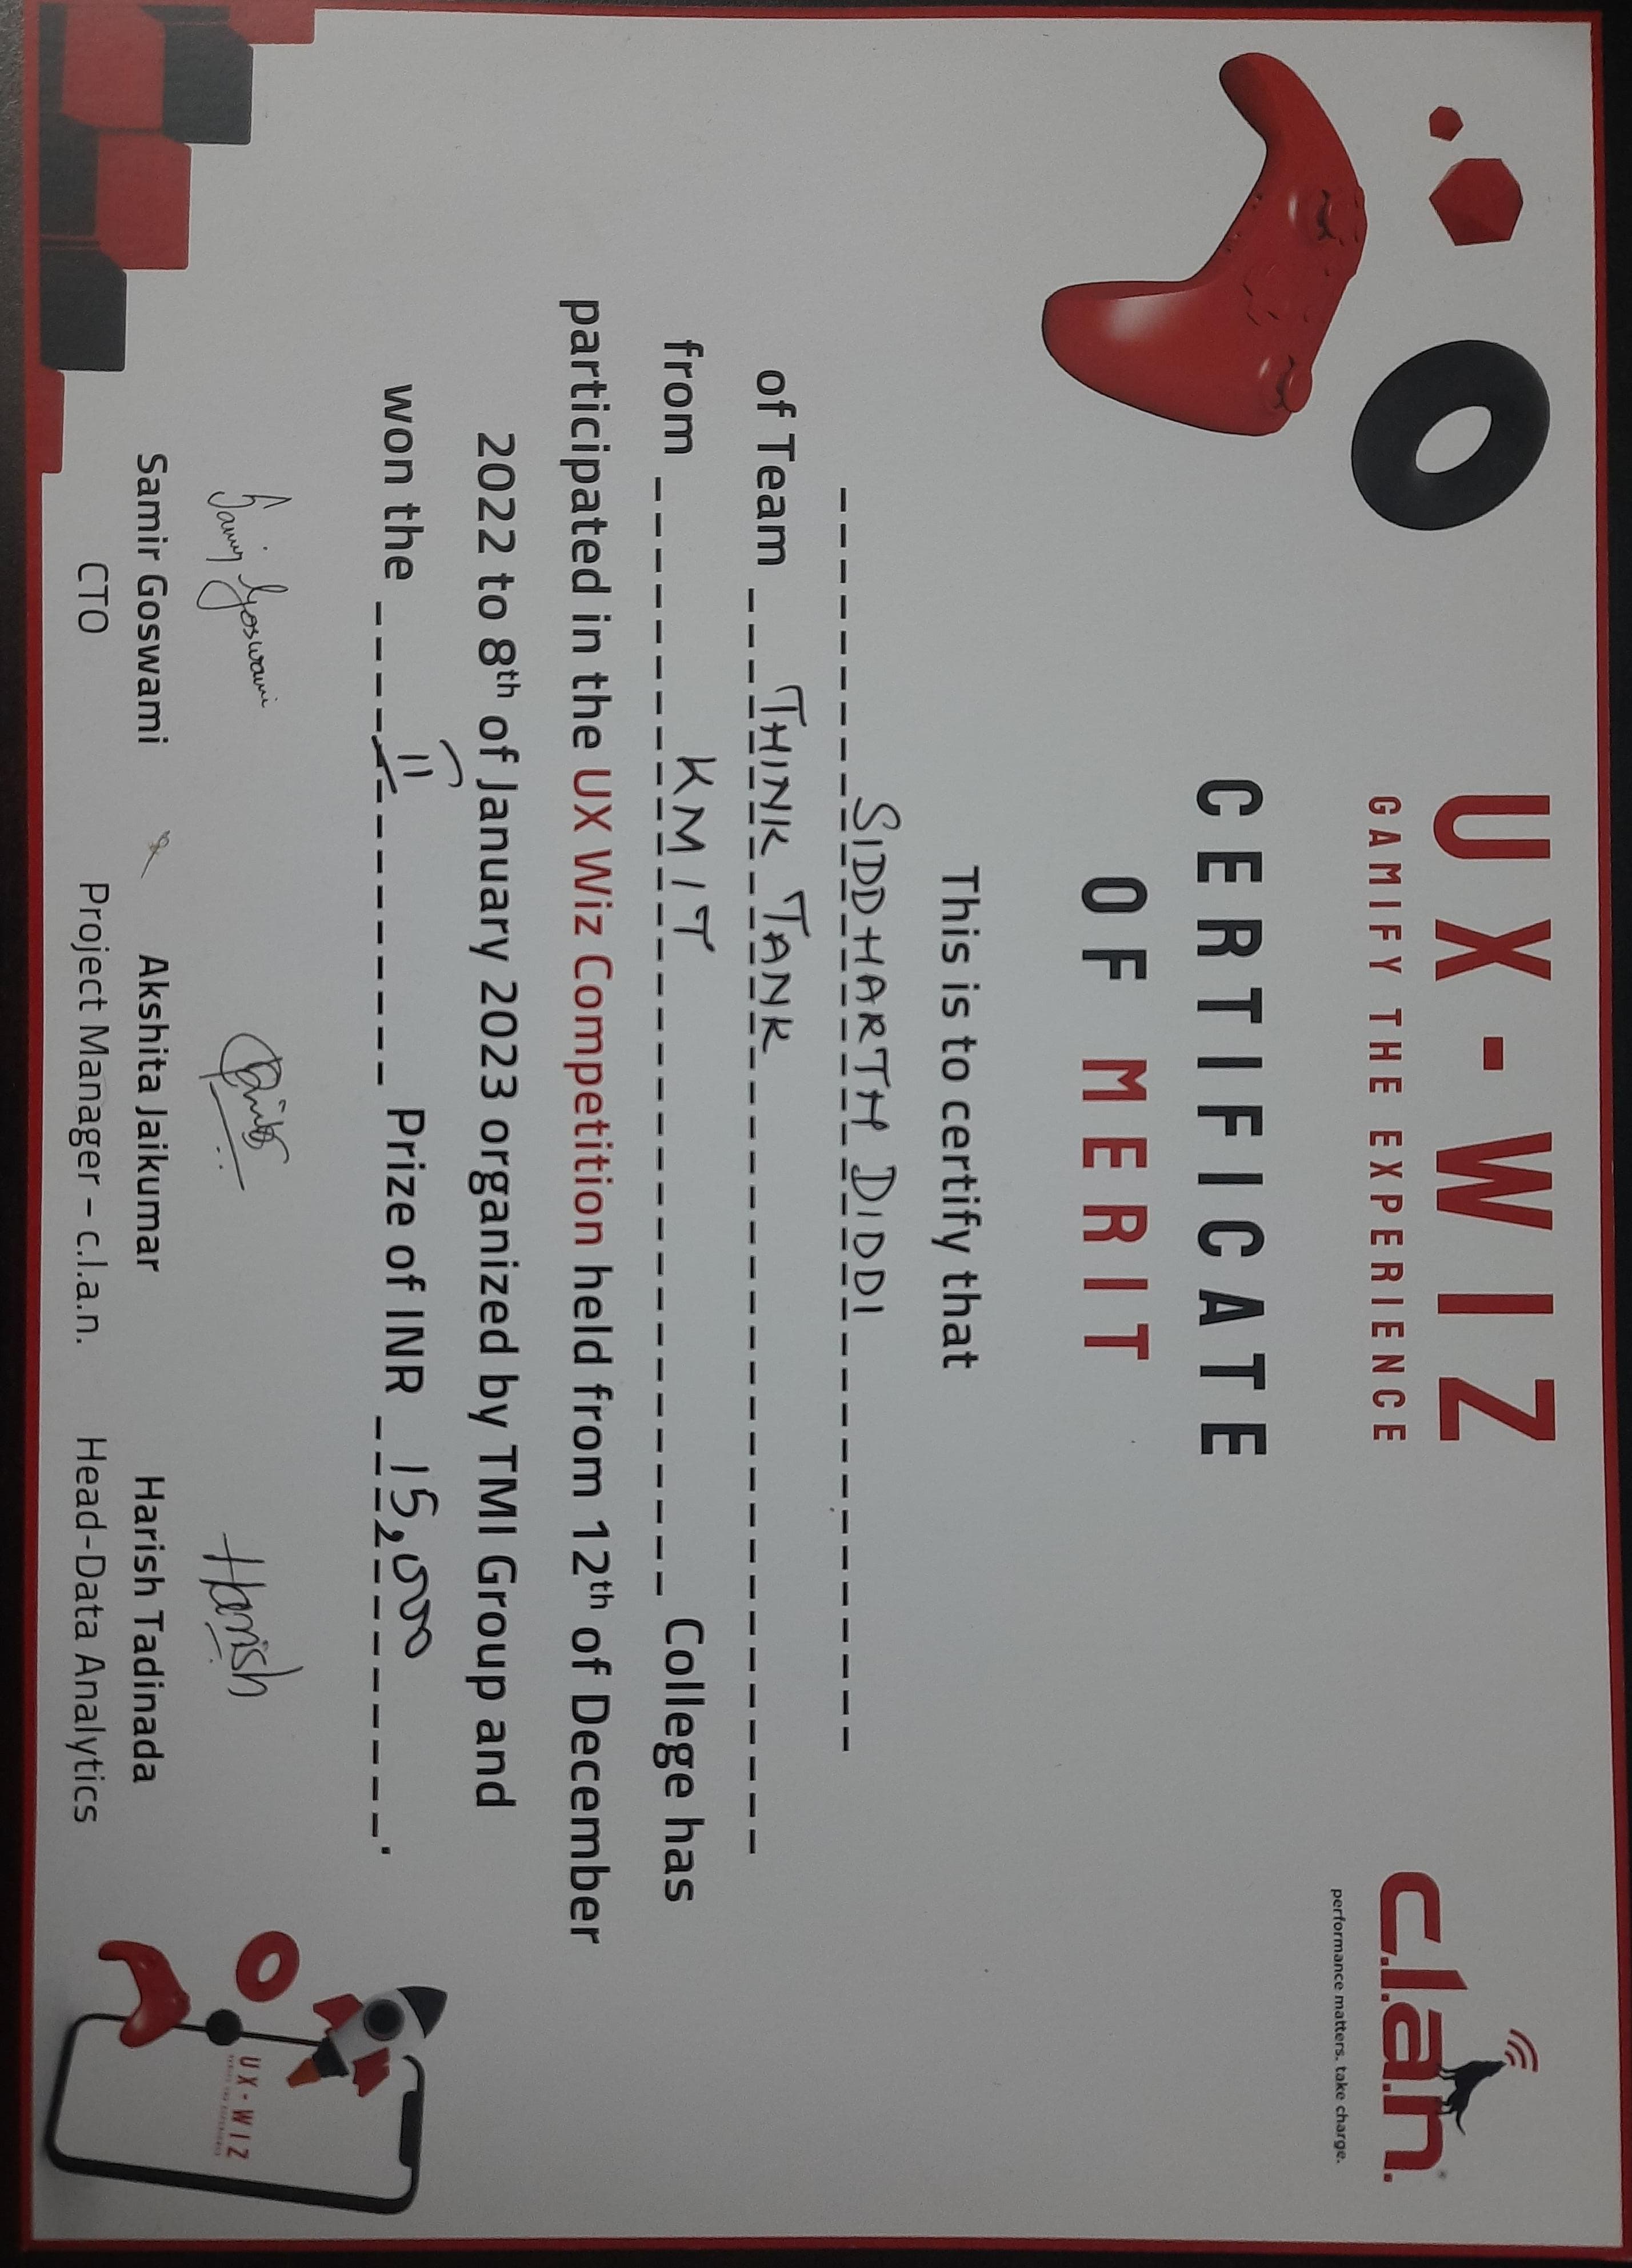 UX-WIZ
GAMIFY THE EXPERIENCE
c.l.a.n.®
performance matters. take charge.
CERTIFICATE
OF MERIT
This is to certify that
SIDDHARTH DIDDI
of Team THINK TANK
from KMIT College has
participated in the UX Wiz Competition held from 12th of December
2022 to 8th of January 2023 organized by TMI Group and
won the II Prize of INR 15,000.
Samir Goswami
Harish
Samir Goswami
CTO
Akshita Jaikumar
Project Manager – c.l.a.n.
Harish Tadinada
Head-Data Analytics
UX-WIZ
GAMIFY THE EXPERIENCE